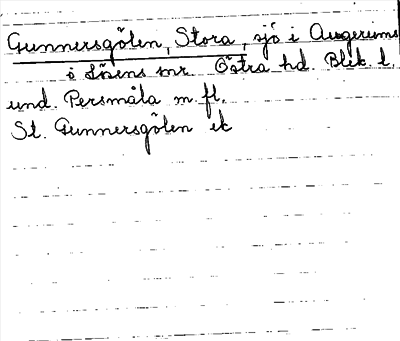 Gunnersgölen, Stora, sjö i Augerums
o Lösens snr. Östra hd. Blek. l.
und. Persmåla m. fl.
St. Gunnersgölen ek